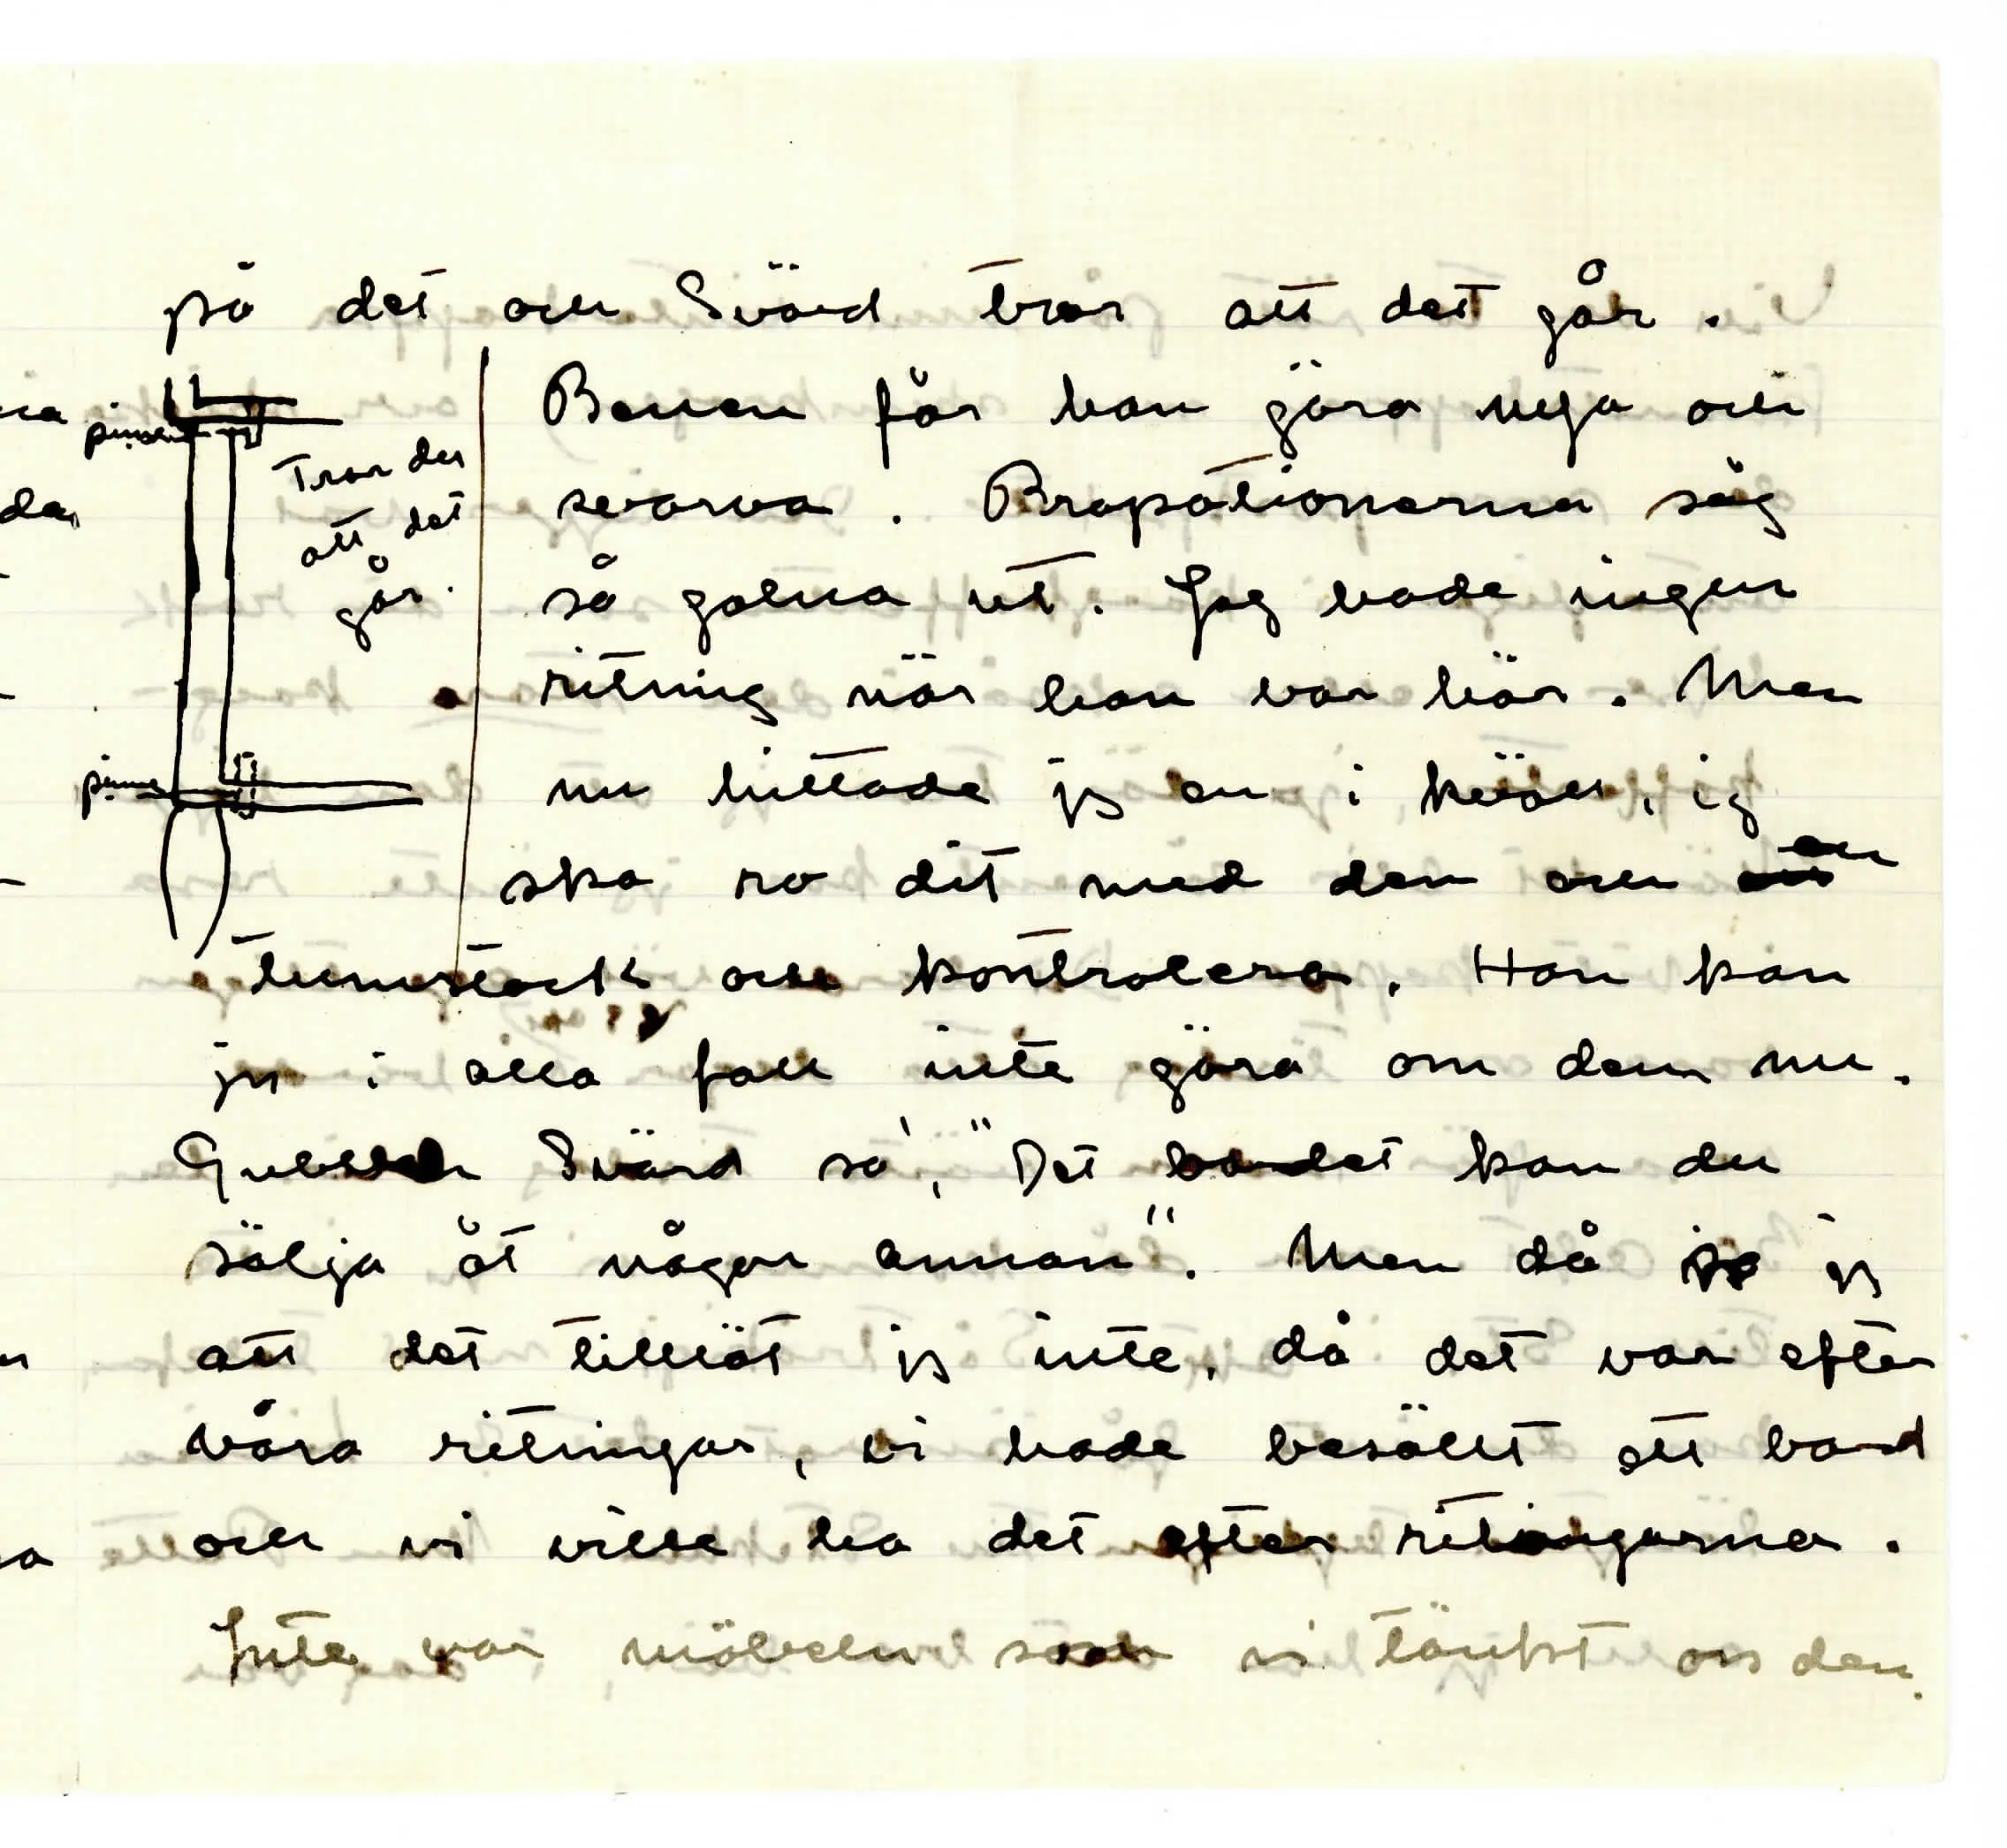 på det och Svärd tror att det går.
Benen får han göra nya och
svarva. Propotionerna såg
så galna ut. Jag hade ingen
ritning när han var här. Men
nu hittade jg en i kväll, jg
ska ro dit med den och en
tumstock och kontrolera. Han kan
ju i alla fall inte göra om dem nu.
Gubben Svärd sa', "Det bordet kan du
sälja åt någon annan". Men då jg
att det tillät jg inte, då det var efter
våra ritningar, vi hade besällt ett bord
och vi ville ha det efter ritningarna.
Inte var möbeln som vi tänkt oss den.
pinne
Tror du
att det
går.
pinne